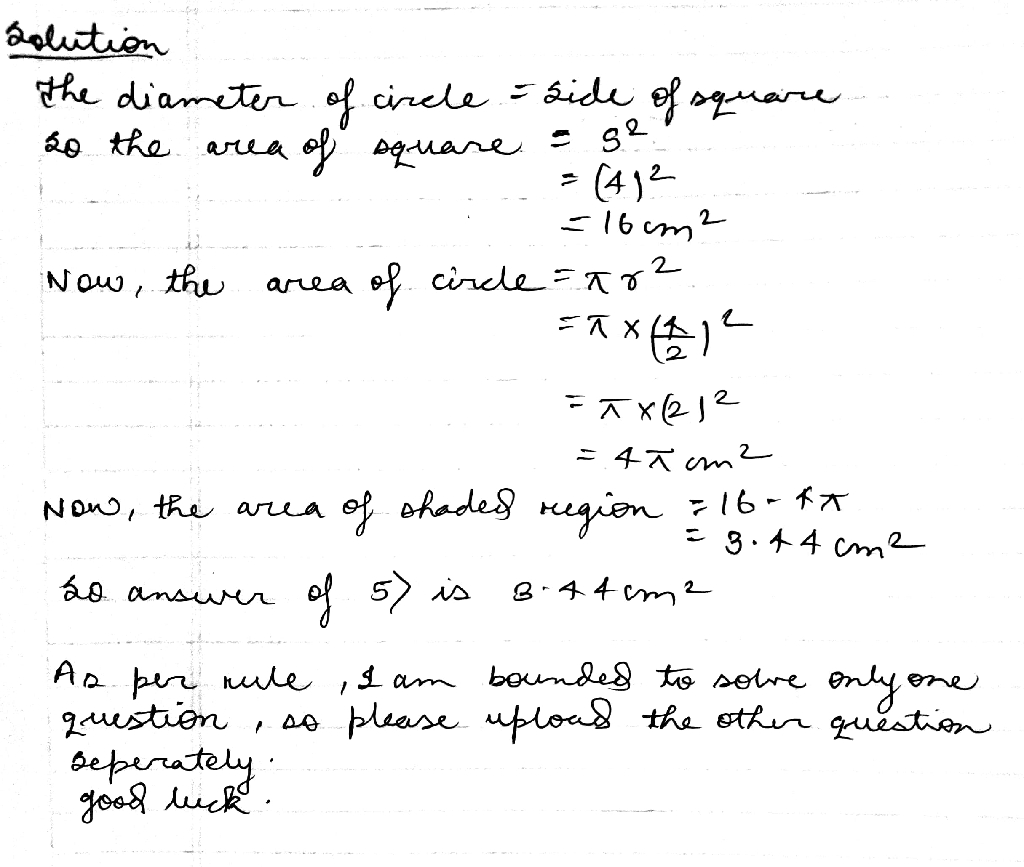 Solution
The diameter of circle = side of square
So the area of square = S²
= (4)²
= 16 cm²
Now, the area of circle = πr²
= π × (4/2)²
= π × (2)²
= 4π cm²
Now, the area of shaded region = 16 - 4π
= 3.44 cm²
So answer of 5) is 3.44 cm²
As per rule, I am bounded to solve only one
question, so please upload the other question
seperately.
good luck.